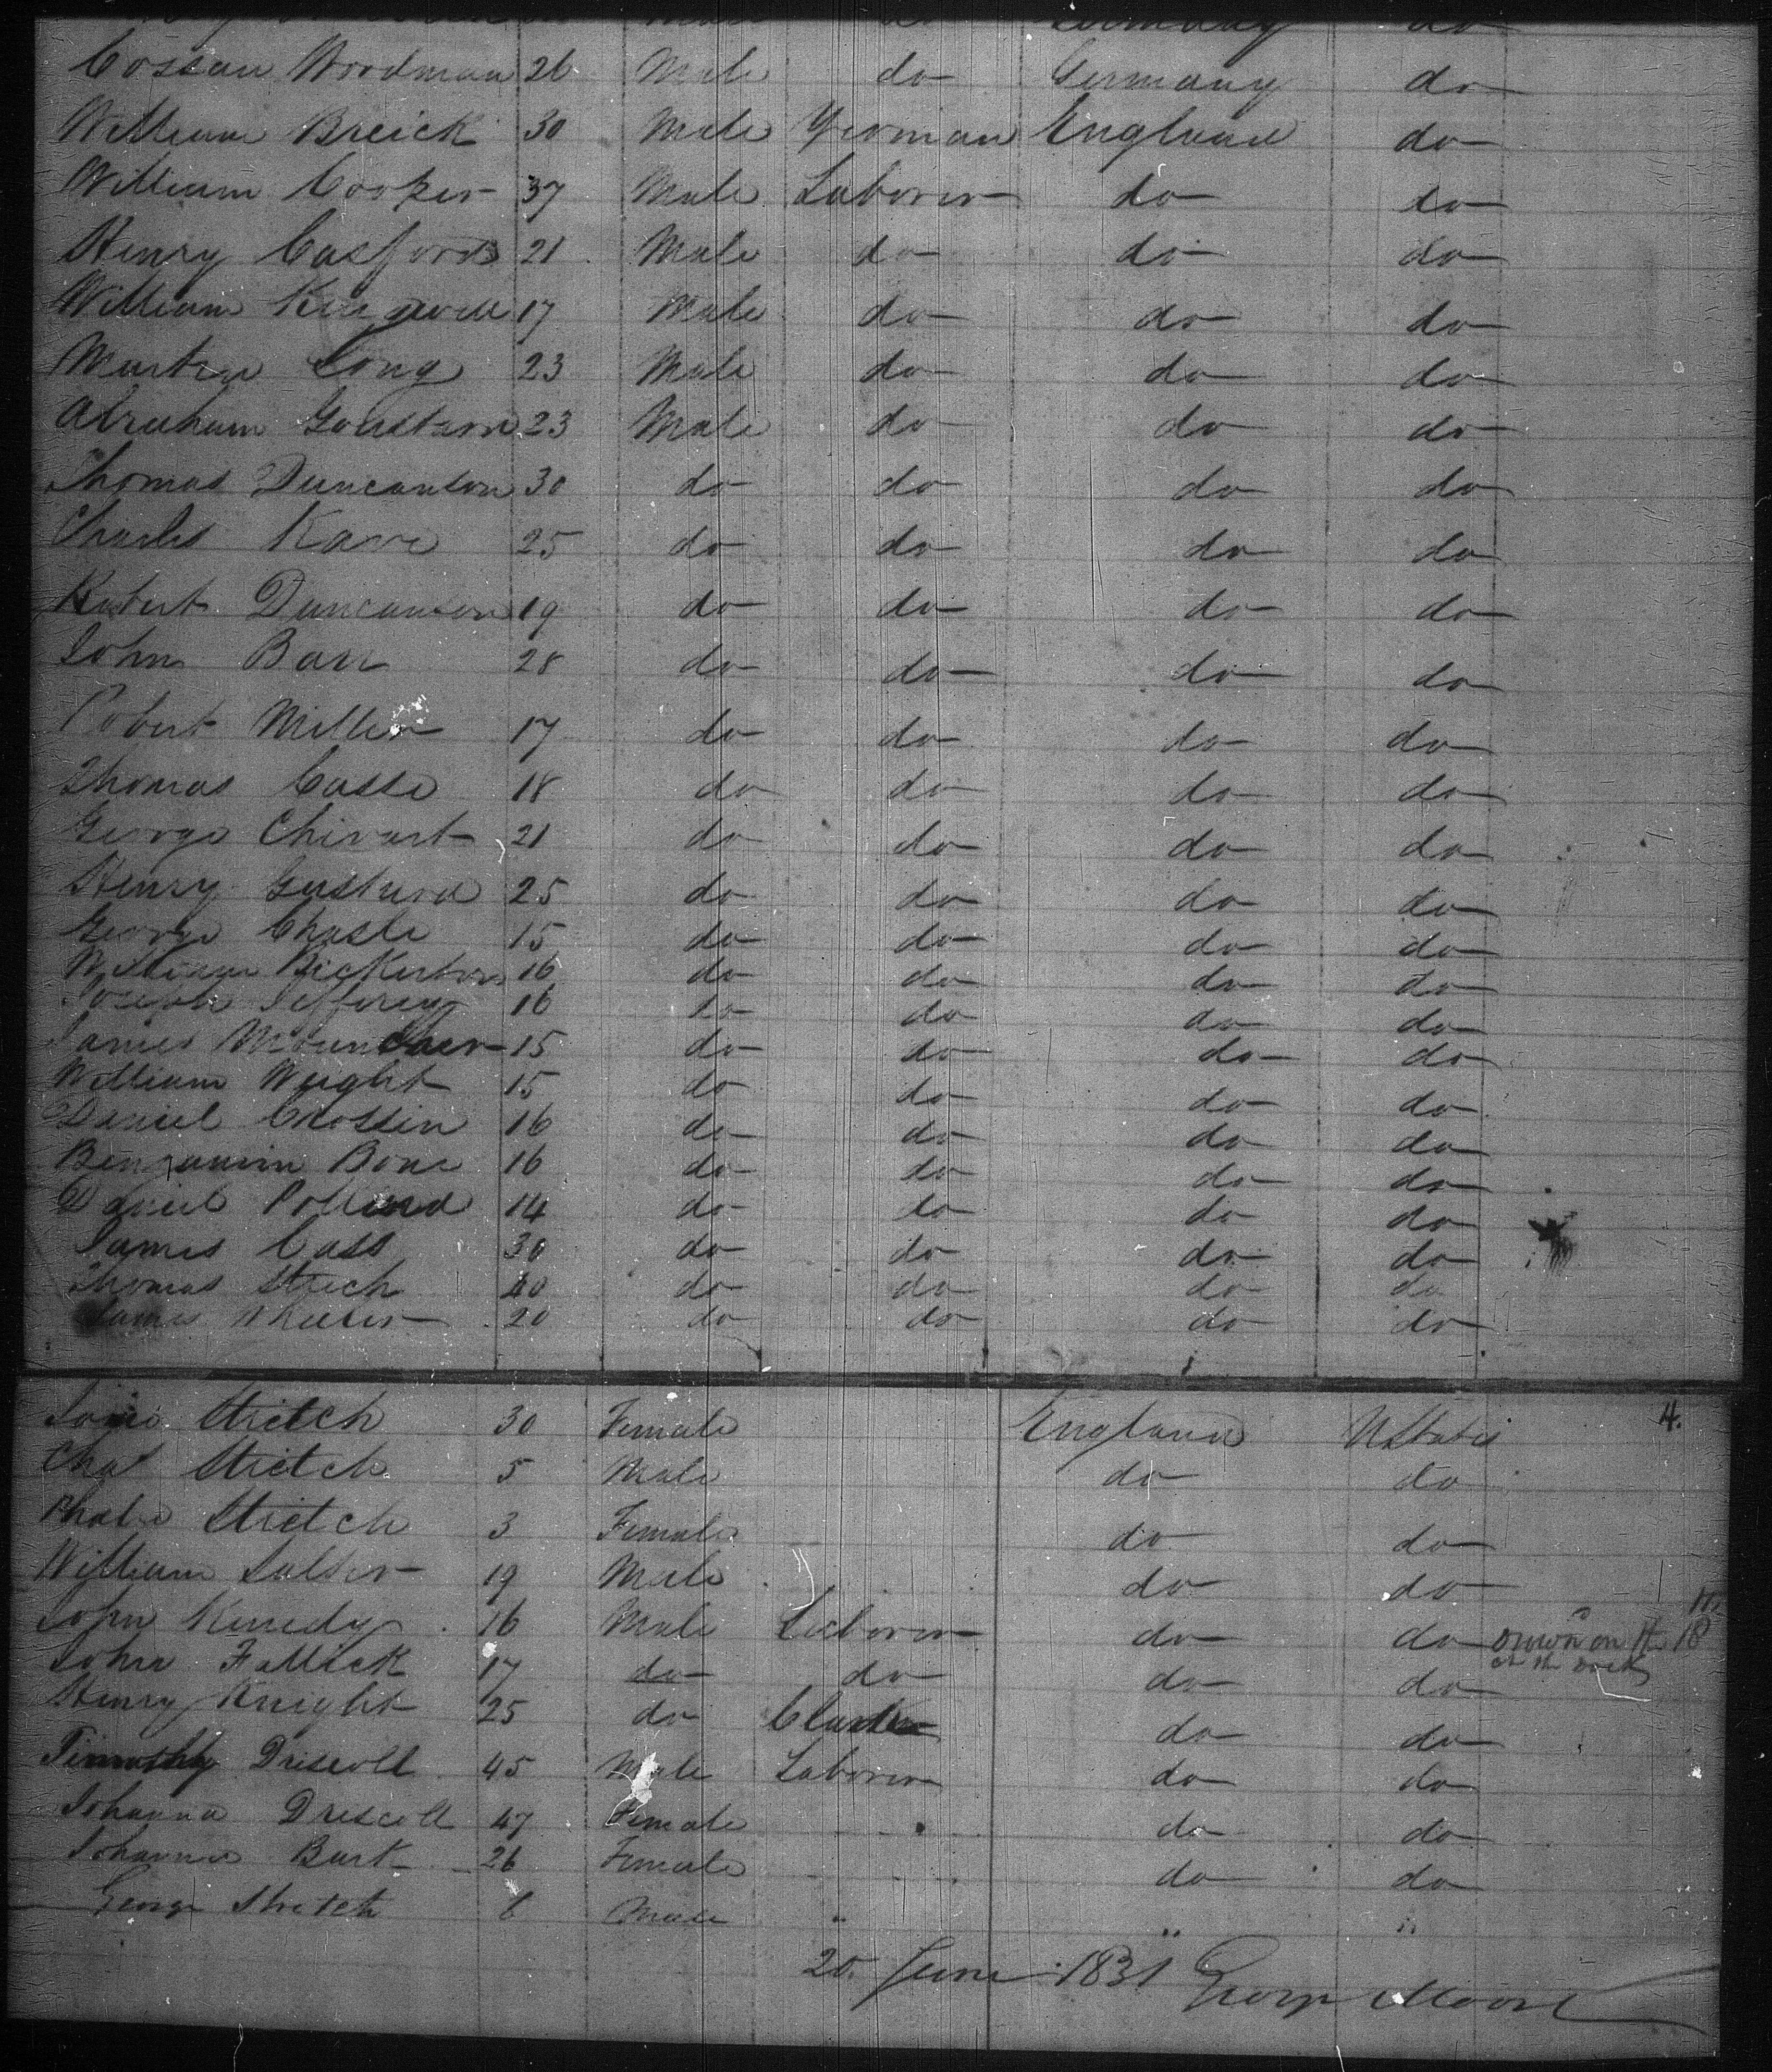 Male do Germany do
Cossan Woodman 26 Male do Germany do
William Breick 30 Male Yeoman England do
William Cooper 37 Male Laborer do do
Henry Casford 21 Male do do do
William 17 Male do do do
Martin Long 23 Male do do do
Abraham 23 Male do do do
Thomas Duncanson 30 do do do do
Charles Kave 25 do do do do
Robert Duncanson 19 do do do do
John Barr 28 do do do do
Robert Miller 17 do do do do
Thomas Casse 18 do do do do
George Chivart 21 do do do do
Henry Gustard 25 do do do do
George Chasle 15 do do do do
William Bickerton 16 do do do do
Joseph Jefferey 16 do do do do
James 15 do do do do
William Wright 15 do do do do
Daniel Crossin 16 do do do do
Benjamin Bone 16 do do do do
Daniel Pollard 14 do do do do
James Cass 30 do do do do
Thomas Strech 40 do do do do
James Wheeler 20 do do do do
4.
Stretch 30 Female England UStates
Chas Stretch 5 Male do do
Phabe Stretch 3 Female do do
William Salter 19 Male do do
John Kenedy 16 Male Laborer do do Drown on the 18
at the dock
John Fallick 17 do do do do
Henry Knight 25 do do do
Timothy Driscoll 45 Male Laborer do do
Johanna Driscoll 47 Female do do
Johanna Burk 26 Female do do
George Stretch 6 Male " " "
20 June 1831 George Moore